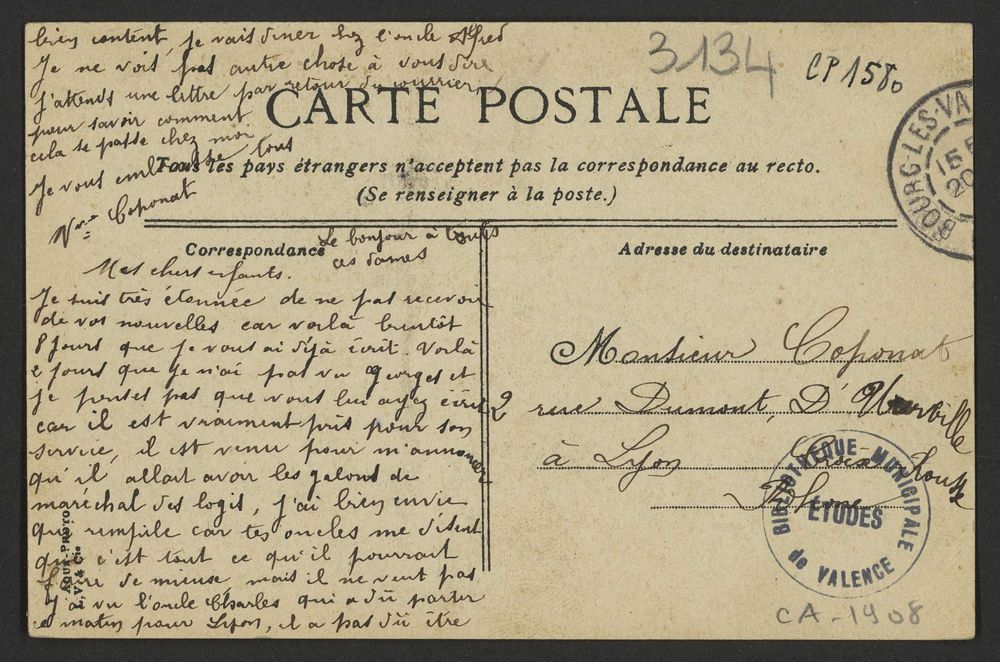 bien content, je vais diner chez l'oncle Alfred
Je ne vois pas autre chose à vous dire
j'attends une lettre par retour du courrier
pour savoir comment
cela se passe chez moi
Je vous embrasse tous
Vve Coponat
3134
CP 1580
CARTE POSTALE
Tous les pays étrangers n'acceptent pas la correspondance au recto.
(Se renseigner à la poste.)
BOURG-LES-VA
15
20
Correspondance
Le bonjour à toutes
ces dames
Mes chers enfants.
Je suis très étonnée de ne pas recevoir
de vos nouvelles car voilà bientôt
8 jours que je vous ai déjà écrit. Voilà
2 jours que je n'ai pas vu Georges et
je penses pas que vous lui ayez écrit
car il est vraiment pris pour son
service, il est venu pour m'annoncer
qu'il allait avoir les galons de
maréchal des logis, j'ai bien envie
qu'il rempile car tes oncles me disent
que c'est tout ce qu'il pourrait
faire de mieux mais il ne veut pas
J'ai vu l'oncle Charles qui a dû partir
ce matin pour Lyon, il a pas dû être
AQUA-PHOTO
V. & Cie
Adresse du destinataire
Monsieur Coponat
2 rue Dumont D'Urville
à Lyon Croix Rousse
Rhône
BIBLIOTHEQUE MUNICIPALE
ETUDES
de VALENCE
CA-1908